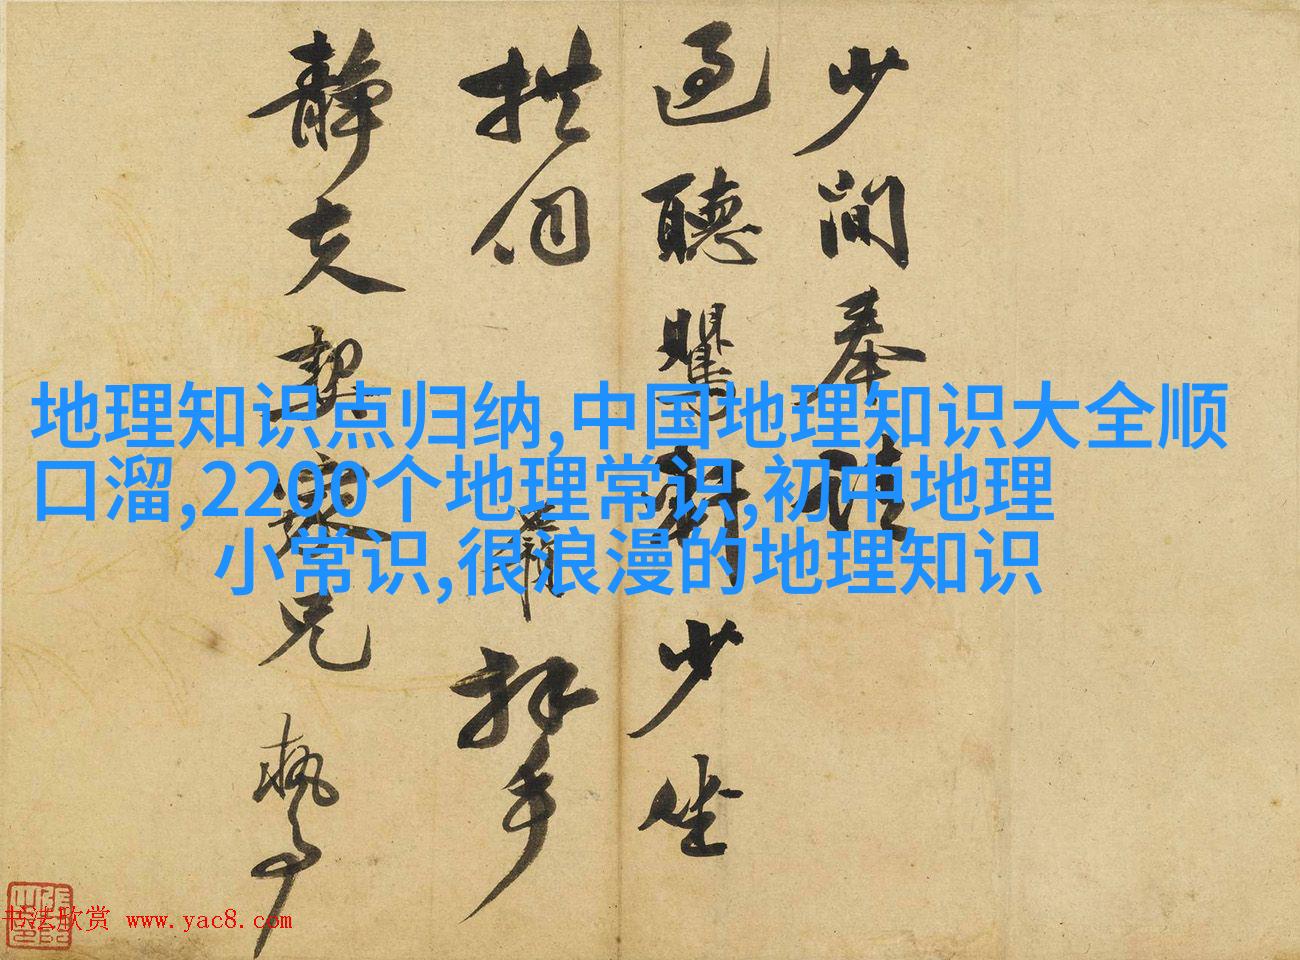 少間奉
過聽鸎 少坐
拱伺 拜手
靜夫契 兄執事
地理知识点归纳,中国地理知识大全顺
口溜,2200个地理常识,初中地理
小常识,很浪漫的地理知识
书法欣赏 www.yac8.com